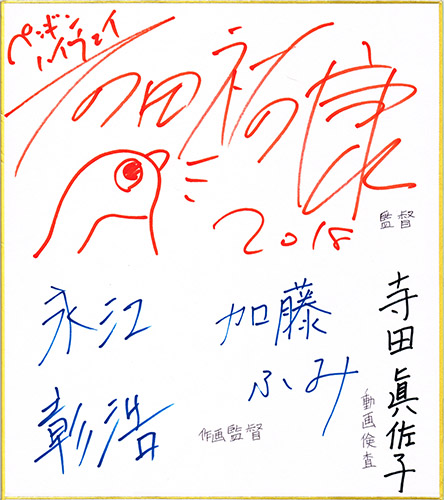 ペンギン
ハイウェイ
石田祐康
2018
監督
永江
彰浩
加藤
ふみ
作画監督
寺田眞佐子
動画検査